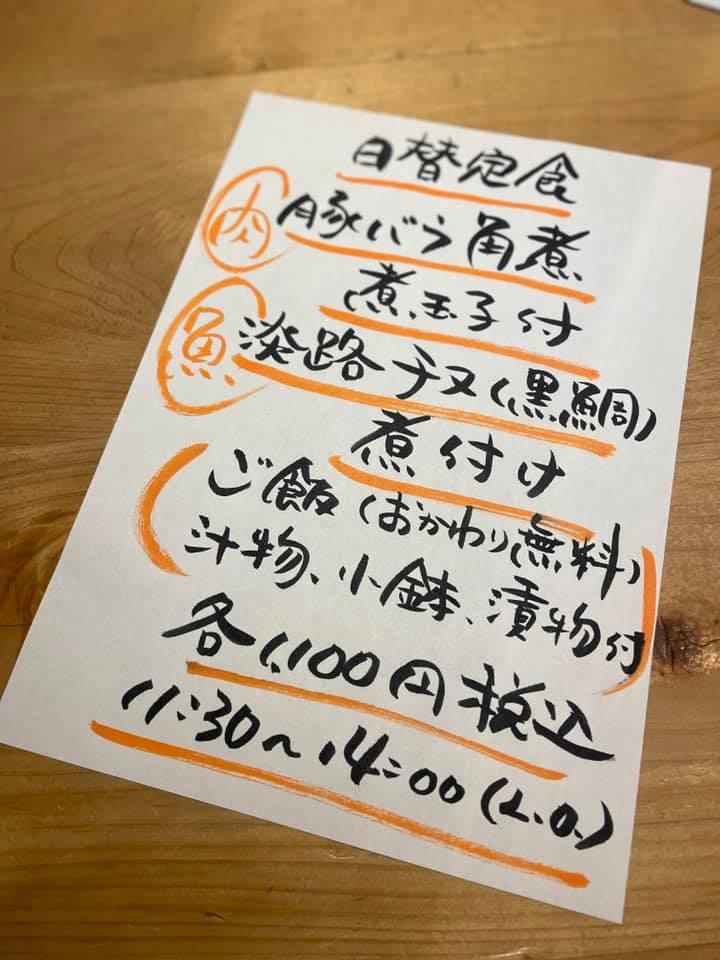 日替定食
肉 豚バラ角煮
煮玉子付
魚 淡路チヌ(黒鯛)
煮付け
(ご飯(おかわり無料)
汁物、小鉢、漬物付)
各1,100円税込
11:30〜14:00(L.O.)